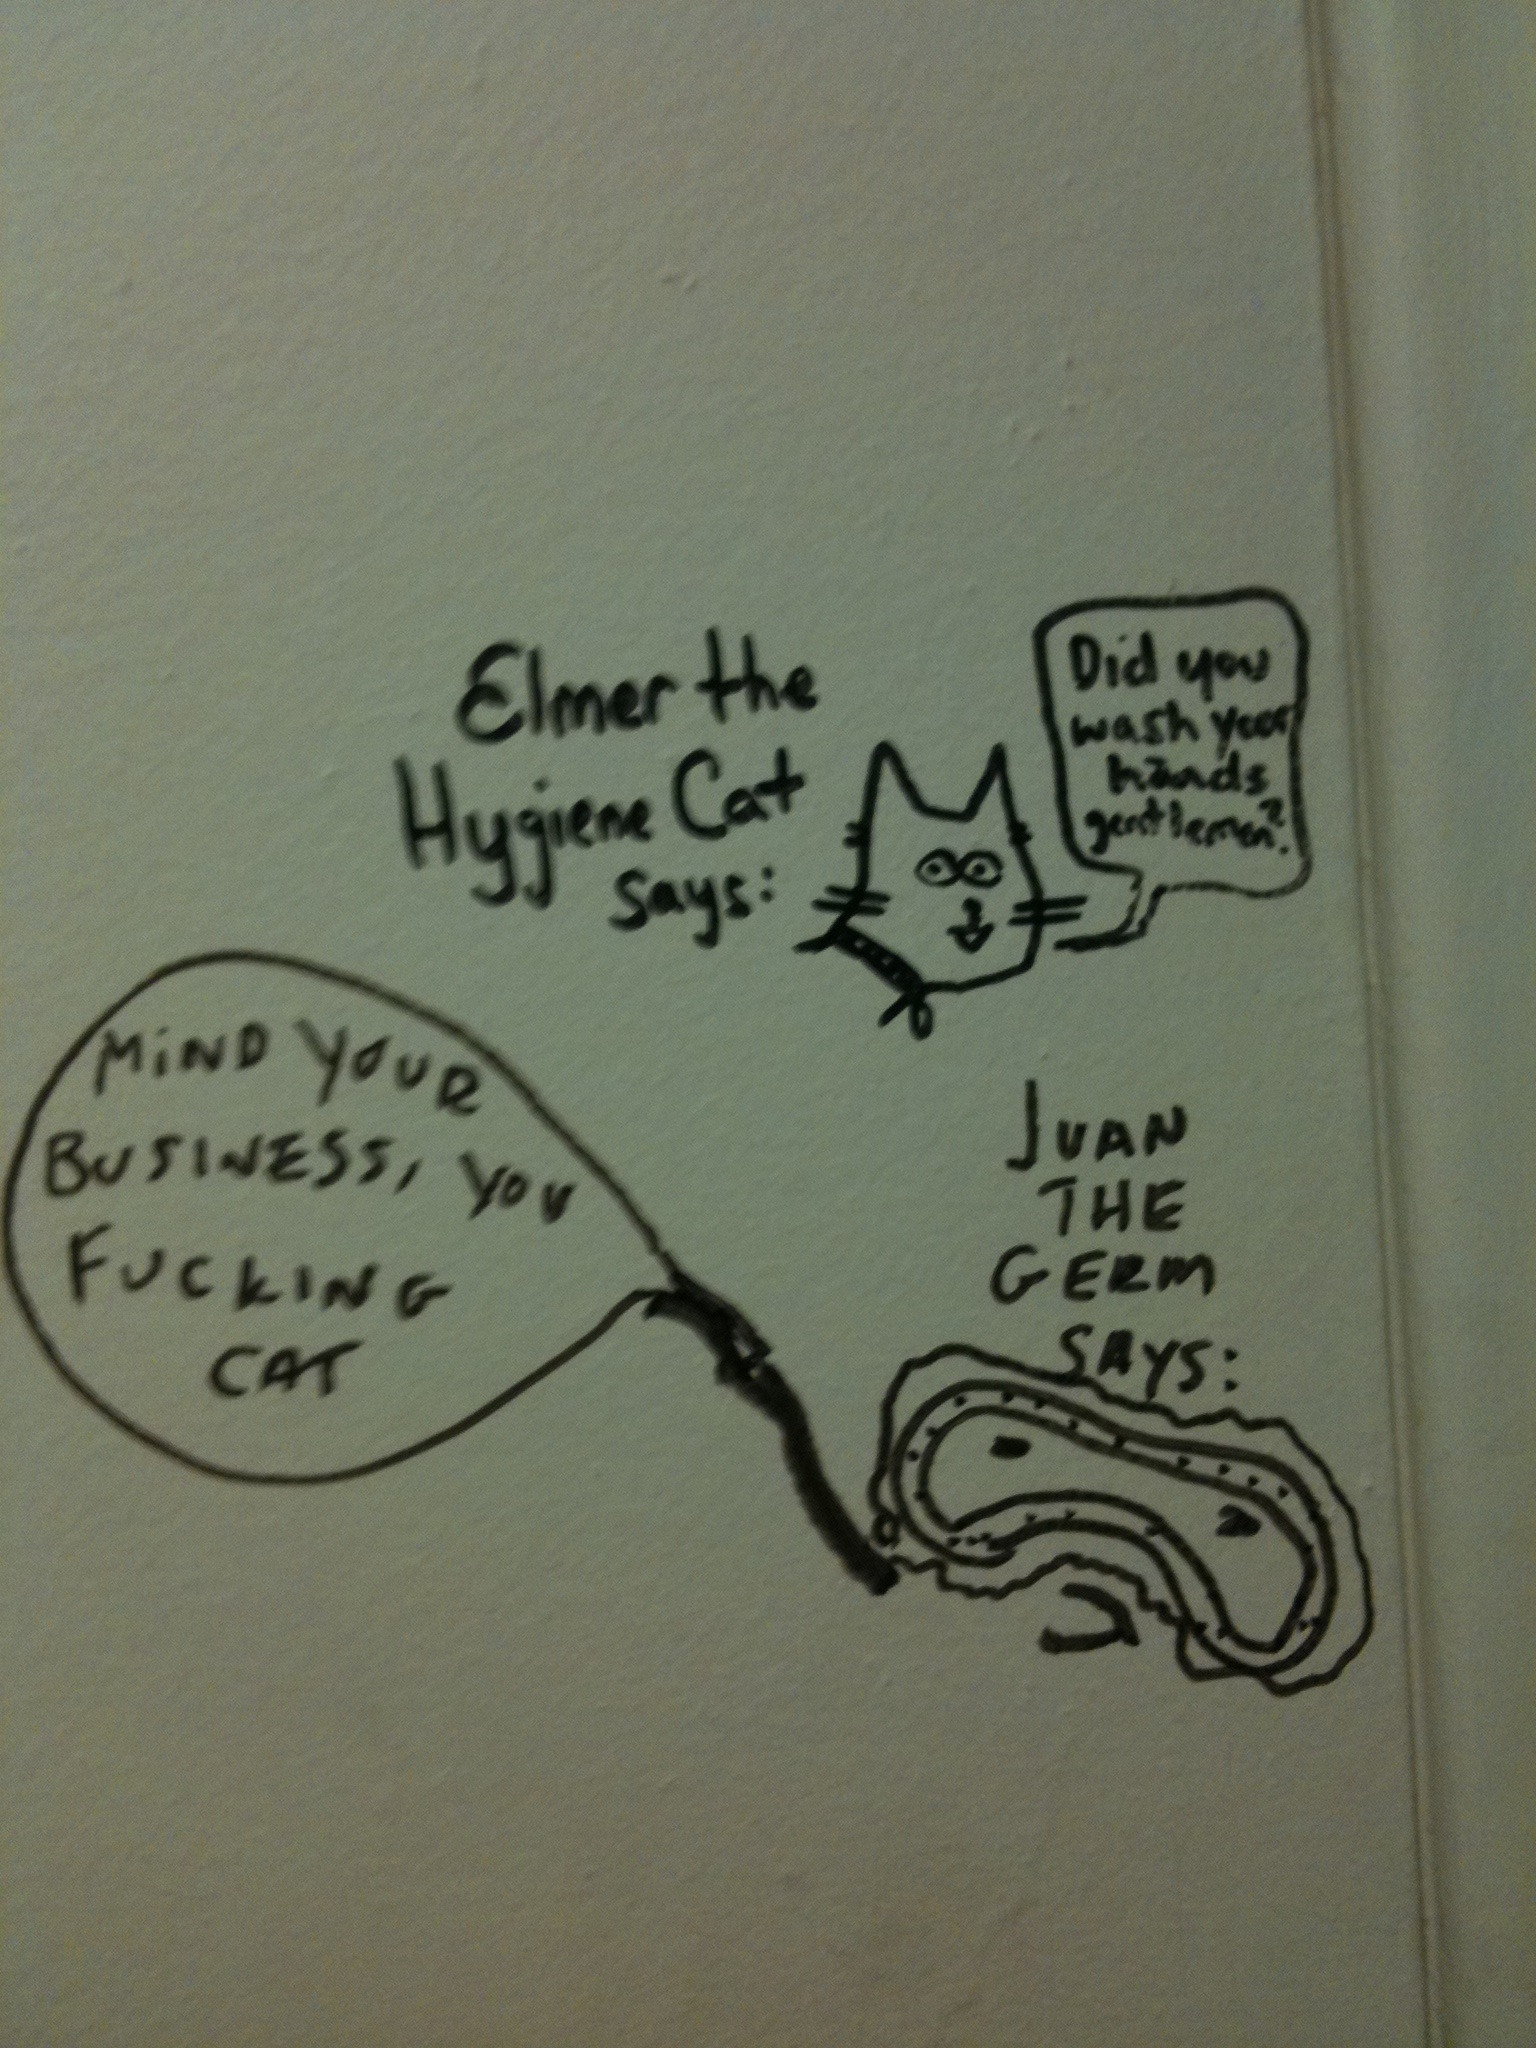 Elmer the
Hygiene Cat
says:
Did you
wash your
hands
gentlemen?
JUAN
THE
GERM
SAYS:
MiND YOUR
BUSINESS, YOU
FUCKING
CAT